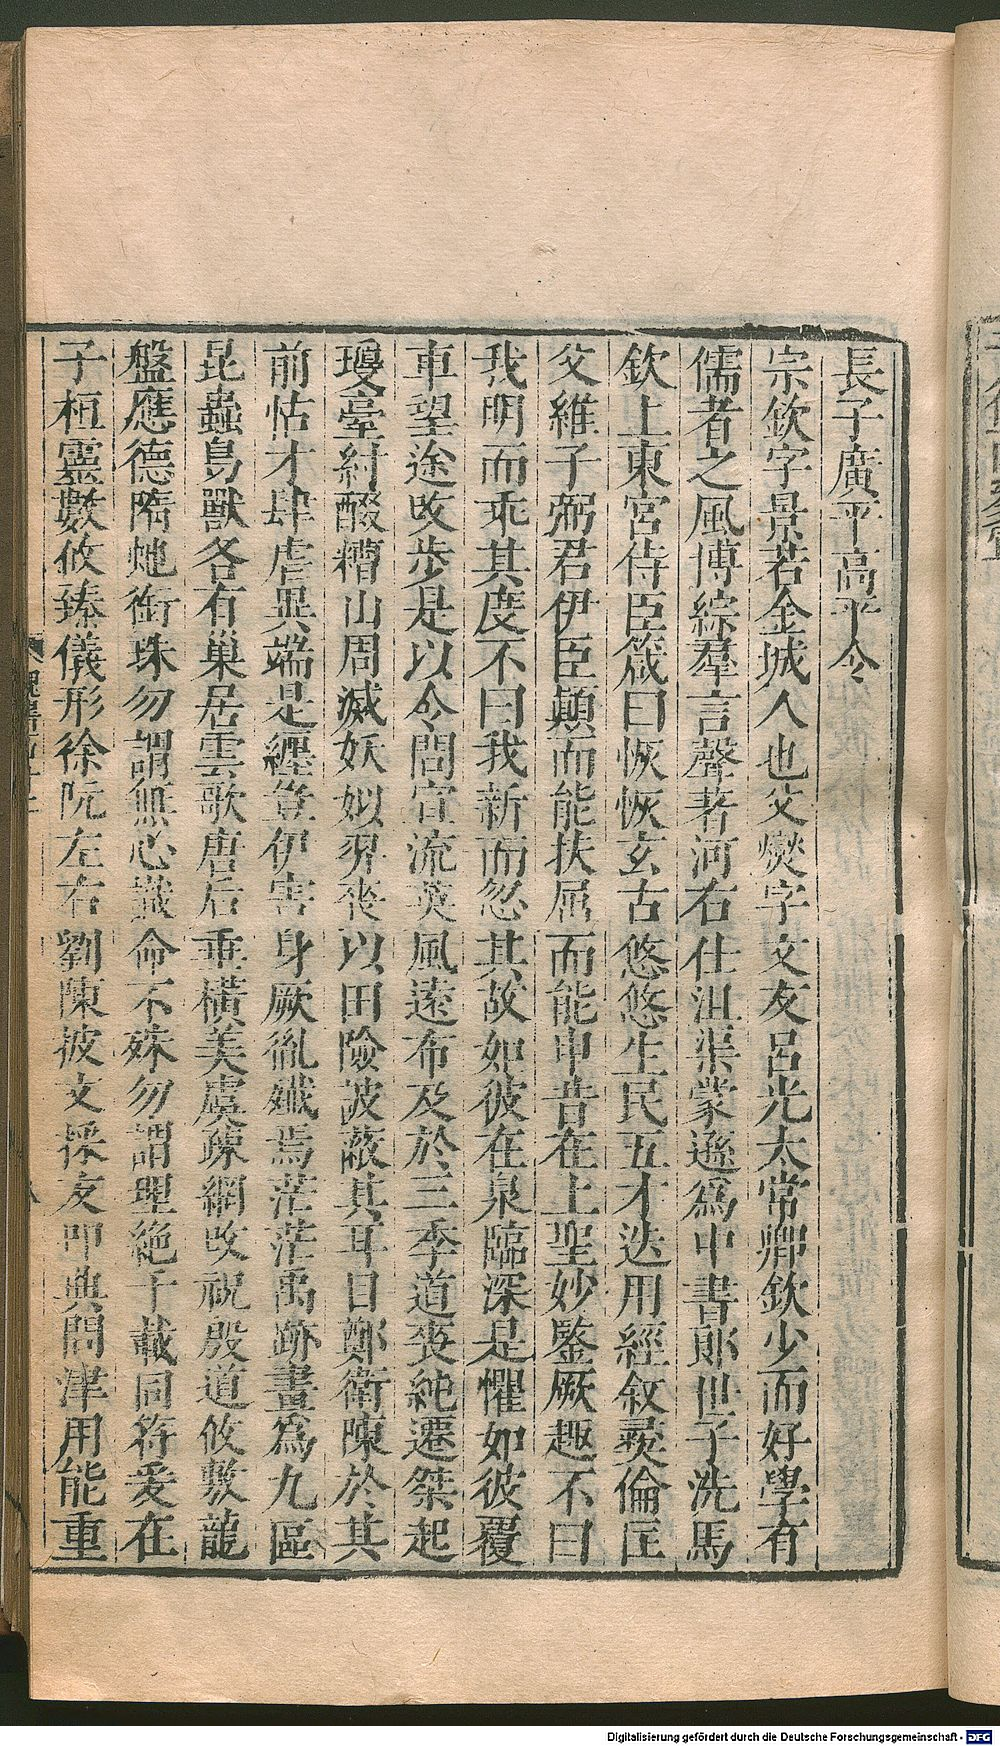 長子廣平高平令
宗欽字景若金城人也父燮字文友呂光太常卿欽少而好學有
儒者之風博綜羣言聲著河右仕沮渠蒙遜爲中書郎世子洗馬
欽上東宮侍臣箴曰恢恢玄古悠悠生民五才迭用經叙彛倫匡
父維子弼君伊臣顚而能扶屈而能申昔在上聖妙鑒厥趣不曰
我明而乖其度不曰我新而忽其故如彼在泉臨深是懼如彼覆
車望途改步是以令問宣流英風遠布及於三季道喪純遷桀起
瓊臺紂醊糟山周滅妖姒羿喪以田險詖蔽其耳目鄭衛陳於其
前怙才肆虐異端是纏豈伊害身厥胤殲焉茫茫禹跡畫爲九區
昆蟲鳥獸各有巢居雲歌唐后垂橫美虞疎網改祝殷道攸敷龍
盤應德隋虵銜珠勿謂無心識命不殊勿謂理絶千載同符爰在
子桓靈數攸臻儀形徐阮左右劉陳披文採友叩典問津用能重
Digitalisierung gefördert durch die Deutsche Forschungsgemeinschaft - DFG